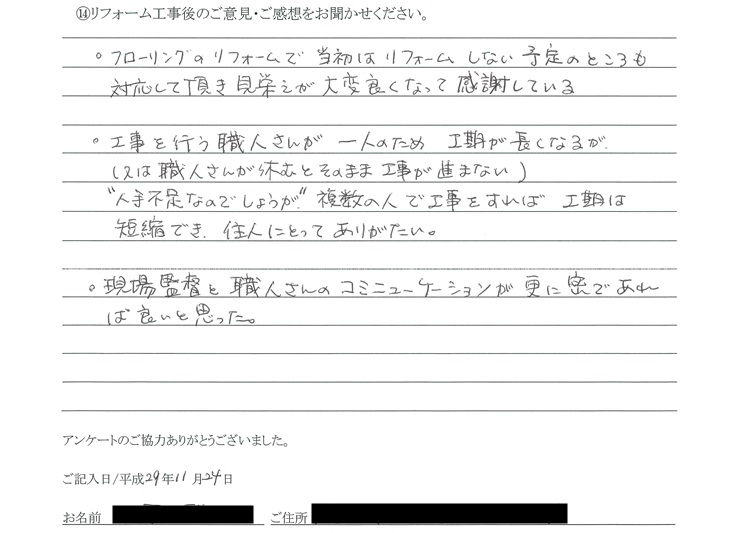 ⑭リフォーム工事後のご意見・ご感想をお聞かせください。
○フローリングのリフォームで当初はリフォームしない予定のところも
対応して頂き見栄えが大変良くなって感謝している
○工事を行う職人さんが一人のため 工期が長くなるが、
(又は職人さんが休むとそのまま工事が進まない)
"人手不足なのでしょうが"複数の人で工事をすれば 工期は
短縮でき、住人にとってありがたい。
○現場監督と職人さんのコミニューケーションが更に密であれ
ば良いと思った。
アンケートのご協力ありがとうございました。
ご記入日/平成29年11月24日
お名前 ご住所